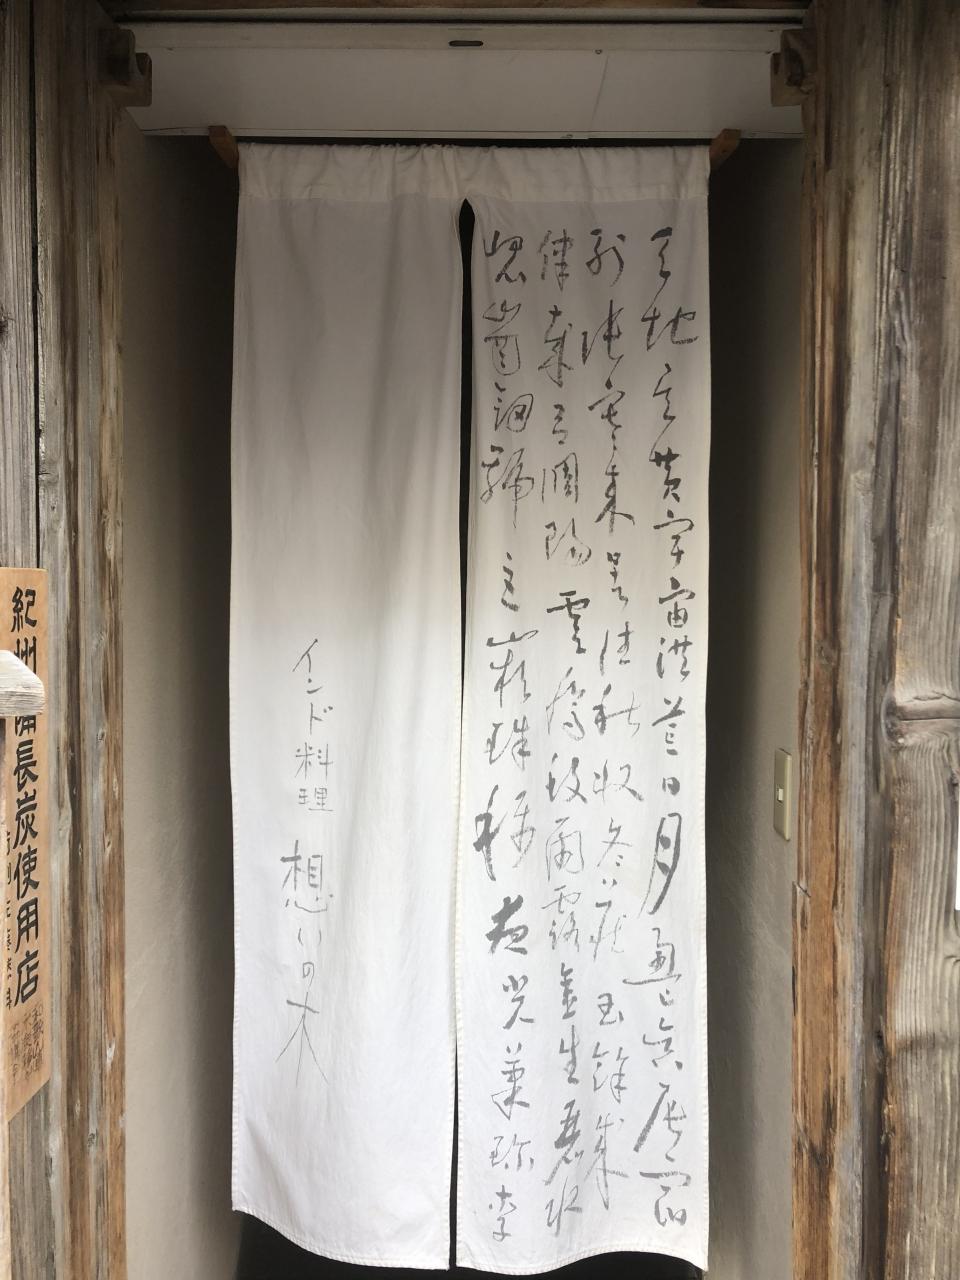 天地玄黄宇宙洪荒日月盈昃辰宿
列張寒来暑往秋収冬蔵閏餘成
律歳呂調陽雲騰致雨露金生麗水
崐崗釼號巨闕珠称夜光菓珍李
インド料理
想いの木
紀州備長炭使用店